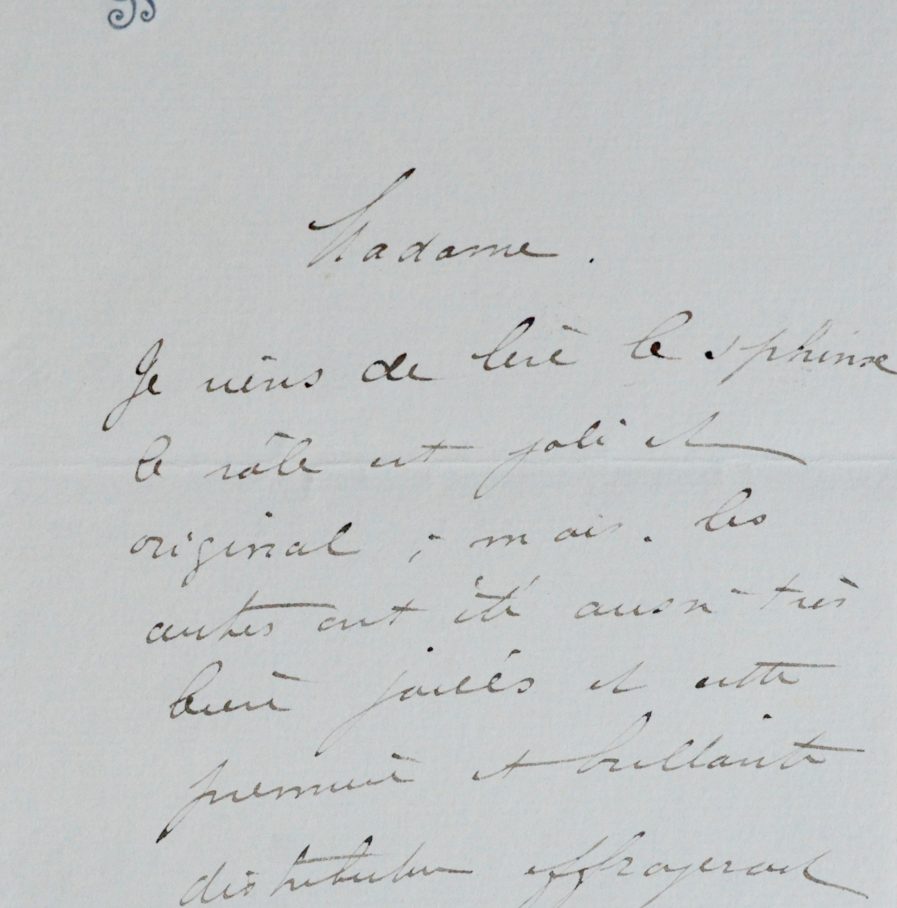 Madame.
Je viens de lire le sphinx
le rôle est joli et
original ; mais. les
autres ont été aussi très
bien joués et cette
première et brillante
distribution effrayerait